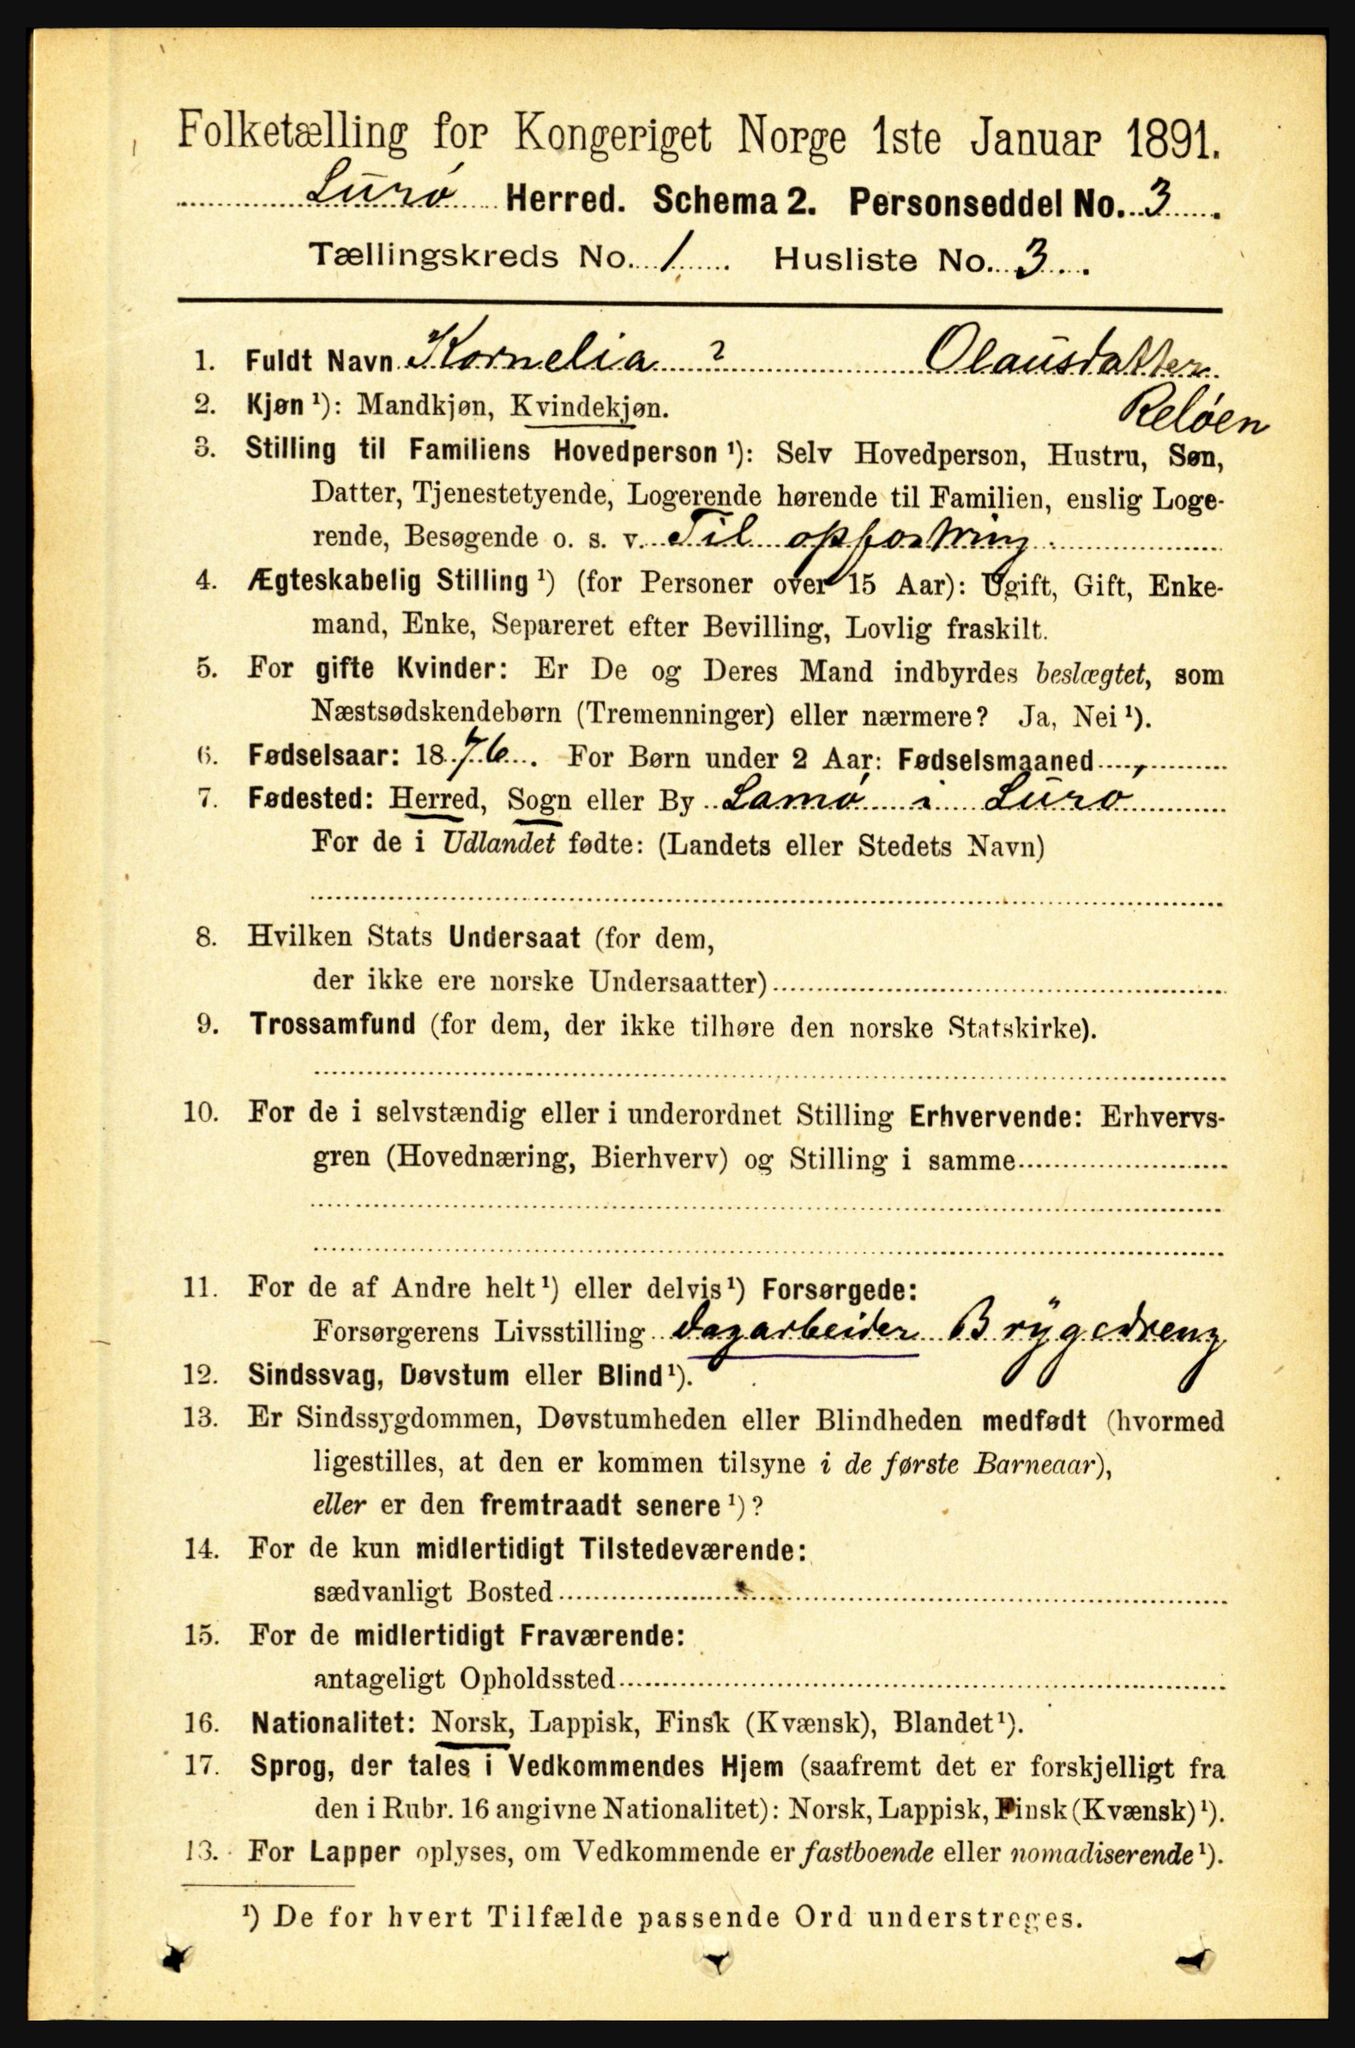 Folketælling for Kongeriget Norge 1ste Januar 1891.
Lurø Herred. Schema 2. Personseddel No. 3.
Tællingskreds No. 1. Husliste No. 3.
1. Fuldt Navn Kornelia ? Olausdatter
Reløen
2. Kjøn ¹): Mandkjøn, Kvindekjøn.
3. Stilling til Familiens Hovedperson ¹): Selv Hovedperson, Hustru, Søn,
Datter, Tjenestetyende, Logerende hørende til Familien, enslig Loge-
rende, Besøgende o. s. v. Til opfostring
4. Ægteskabelig Stilling ¹) (for Personer over 15 Aar): Ugift, Gift, Enke-
mand, Enke, Separeret efter Bevilling, Lovlig fraskilt.
5. For gifte Kvinder: Er De og Deres Mand indbyrdes beslægtet, som
Næstsødskendebørn (Tremenninger) eller nærmere? Ja, Nei ¹).
6. Fødselsaar: 1876. For Børn under 2 Aar: Fødselsmaaned
7. Fødested: Herred, Sogn eller By Lamø i Lurø
For de i Udlandet fødte: (Landets eller Stedets Navn)
8. Hvilken Stats Undersaat (for dem,
der ikke ere norske Undersaatter)
9. Trossamfund (for dem, der ikke tilhøre den norske Statskirke).
10. For de i selvstændig eller i underordnet Stilling Erhvervende: Erhvervs-
gren (Hovednæring, Bierhverv) og Stilling i samme
11. For de af Andre helt ¹) eller delvis ¹) Forsørgede:
Forsørgerens Livsstilling dagarbeider Brygedreng
12. Sindssvag, Døvstum eller Blind ¹).
13. Er Sindssygdommen, Døvstumheden eller Blindheden medfødt (hvormed
ligestilles, at den er kommen tilsyne i de første Barneaar),
eller er den fremtraadt senere ¹)?
14. For de kun midlertidigt Tilstedeværende:
sædvanligt Bosted
15. For de midlertidigt Fraværende:
antageligt Opholdssted
16. Nationalitet: Norsk, Lappisk, Finsk (Kvænsk), Blandet ¹).
17. Sprog, der tales i Vedkommendes Hjem (saafremt det er forskjelligt fra
den i Rubr. 16 angivne Nationalitet): Norsk, Lappisk, Finsk (Kvænsk) ¹).
13. For Lapper oplyses, om Vedkommende er fastboende eller nomadiserende ¹).
¹) De for hvert Tilfælde passende Ord understreges.